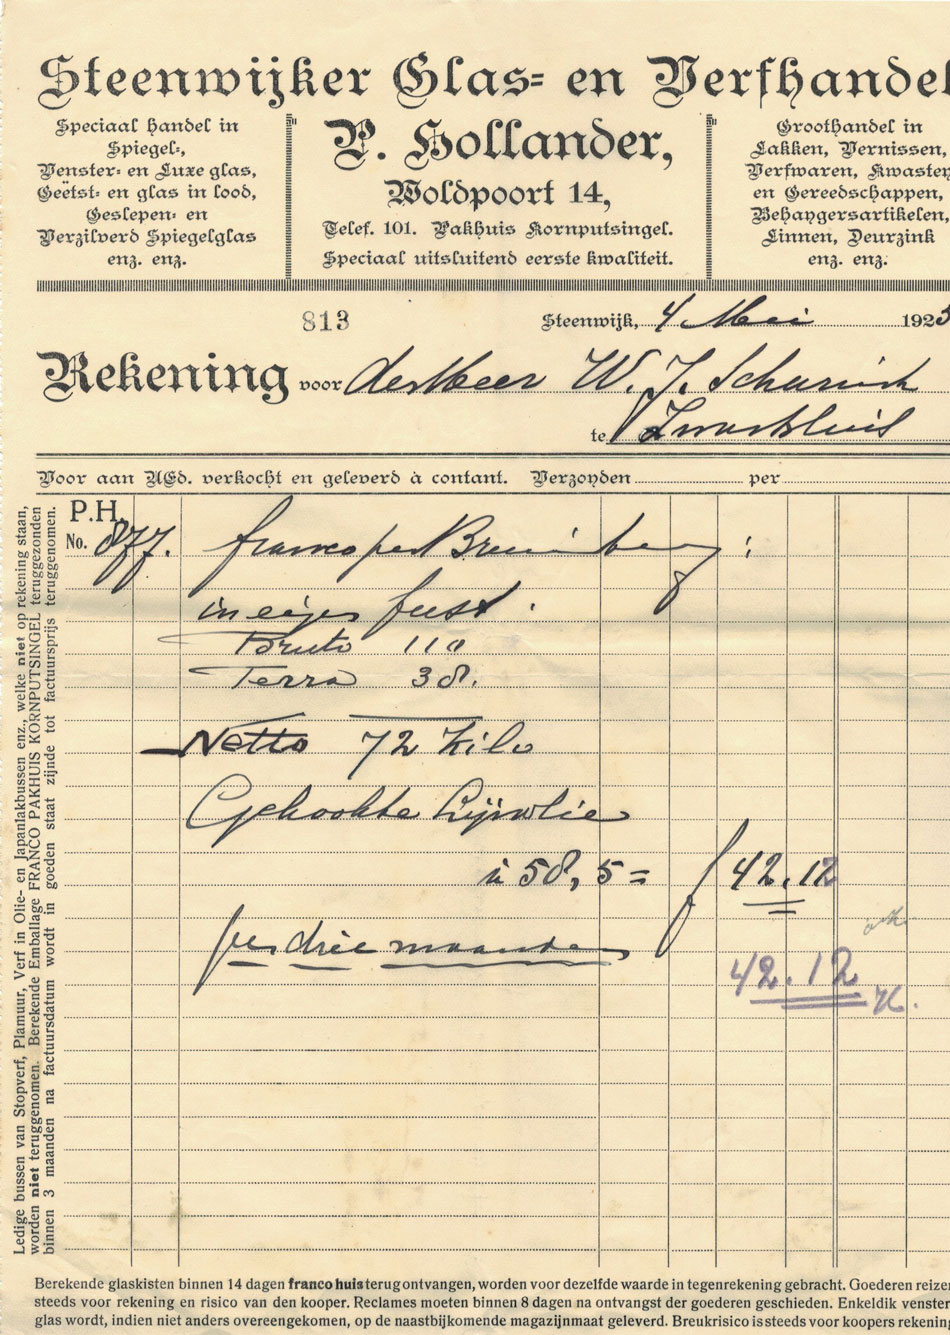 Steenwijker Glas- en Verfhandel
Speciaal handel in
Spiegel-,
Venster- en Luxe glas,
Geëtst- en glas in lood,
Geslepen- en
Verzilverd Spiegelglas
enz. enz.
P. Hollander,
Woldpoort 14,
Telef. 101. Pakhuis Kornputsingel.
Speciaal uitsluitend eerste kwaliteit.
Groothandel in
Lakken, Vernissen,
Verfwaren, Kwasten
en Gereedschappen,
Behangersartikelen,
Linnen, Deurzink
enz. enz.
813
Steenwijk, 4 Mei 1923
Rekening voor den Heer W. J. Schurink
te Zwartsluis
Voor aan UEd. verkocht en geleverd à contant. Verzonden per
P.H.
No. 877. franco per :
in eigen fust.
Bruto 110
Terra 38.
Netto 72 Kilo
Gekookte Lijnolie
à 58,5 = f 42.12
per drie maanden
42.12
Ledige bussen van Stopverf, Plamuur, Verf in Olie- en Japanlakbussen enz., welke niet op rekening staan,
worden niet teruggenomen. Berekende Emballage FRANCO PAKHUIS KORNPUTSINGEL teruggezonden
binnen 3 maanden na factuursdatum wordt in goeden staat zijnde tot factuursprijs teruggenomen.
Berekende glaskisten binnen 14 dagen franco huis terugontvangen, worden voor dezelfde waarde in tegenrekening gebracht. Goederen reizen
steeds voor rekening en risico van den kooper. Reclames moeten binnen 8 dagen na ontvangst der goederen geschieden. Enkeldik venster
glas wordt, indien niet anders overeengekomen, op de naastbijkomende magazijnmaat geleverd. Breukrisico is steeds voor koopers rekening